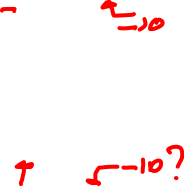 -10
-10?